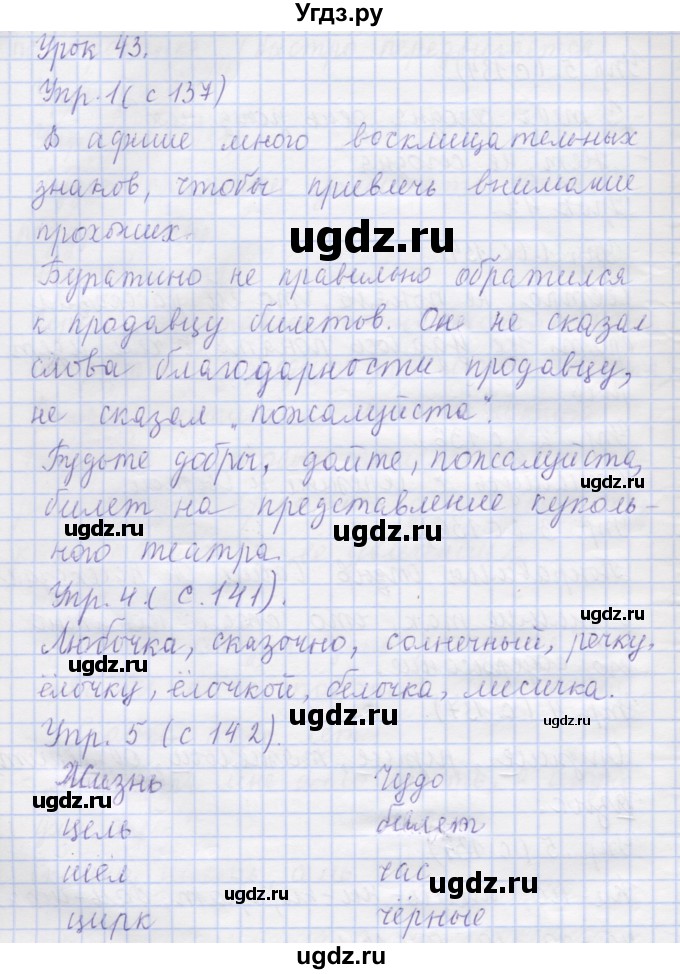 Угдз.ру
Урок 43.
Упр. 1 ( с 137)
В афише много восклицательных
знаков, чтобы привлечь внимание
прохожих.
ugdz.ru
Буратино не правильно обратился
к продавцу билетов. Он не сказал
слова благодарности продавцу,
не сказал „пожалуйста".
Будьте добры, дайте, пожалуйста,
ugdz.ru
билет на представление куколь-
ugdz.ru ugdz.ru
ного театра.
Упр. 4 ( с. 141).
ugdz.ru
Любочка, сказочно, солнечный, речку,
ugdz.ru
ёлочку, ёлочкой, белочка, лисичка.
ugdz.ru ugdz.ru
Упр. 5 (с 142).
Жизнь Чудо
ugdz.ru
цель билет
шёл час
ugdz.ru ugdz.ru
цирк чёрные
ugdz.ru